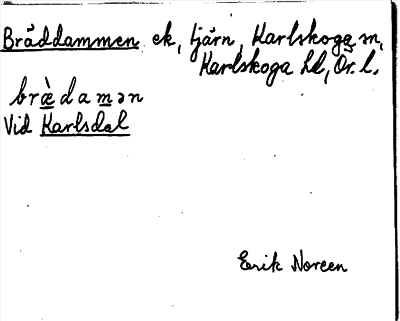 Bräddammen ek, tjärn, Karlskoga sn,
Karlskoga hd, Ör. l.
bræ̀damən
Vid Karlsdal
Erik Noreen